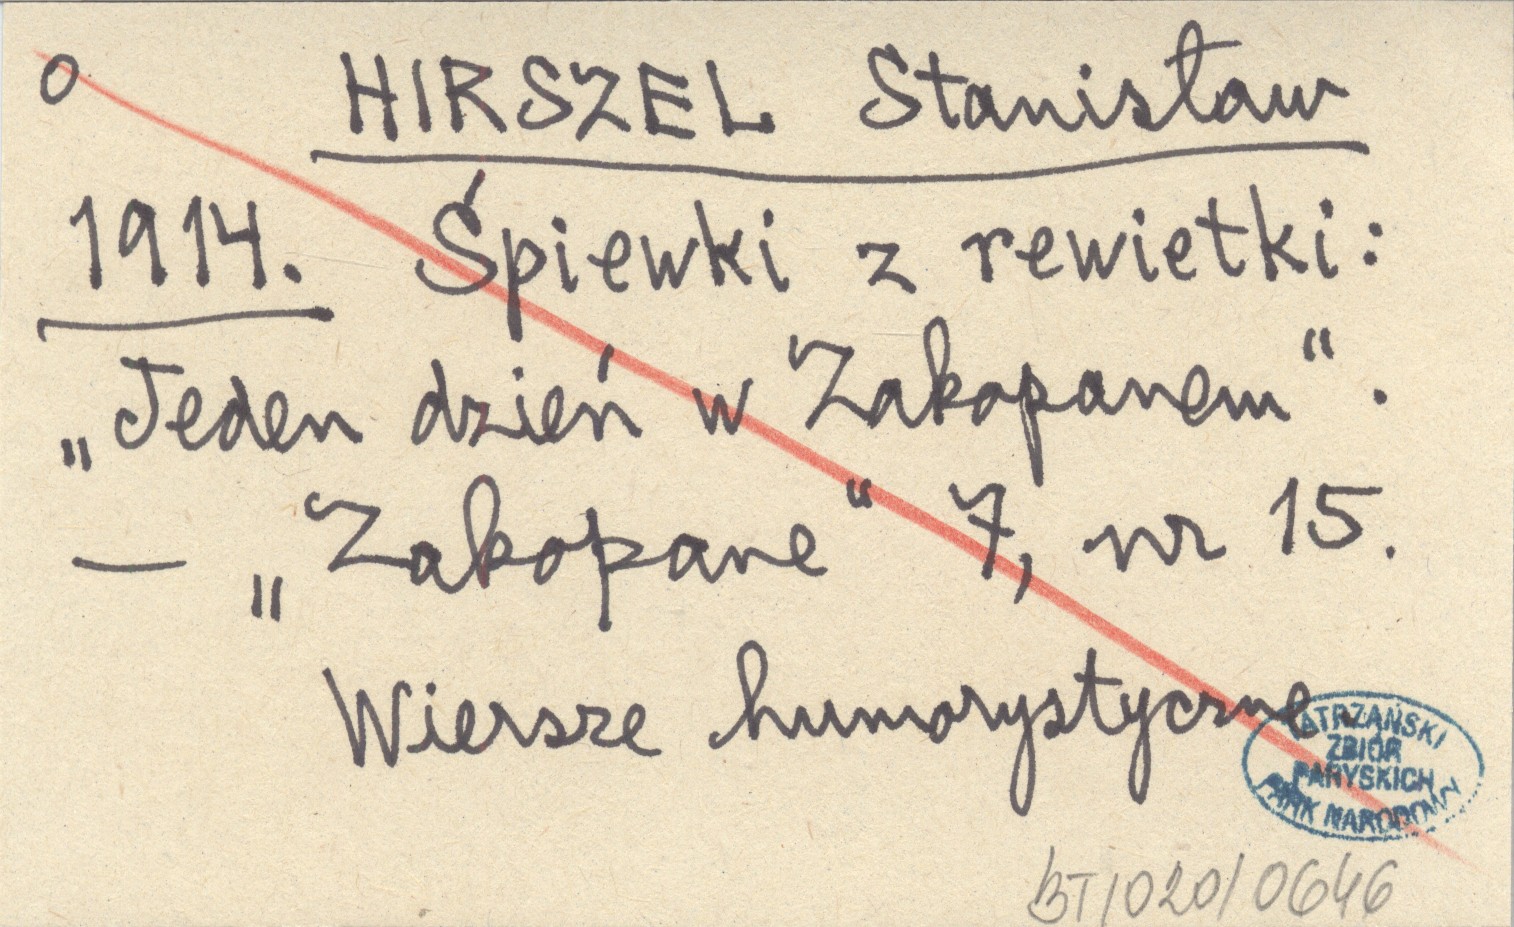 o HIRSZEL Stanisław
1914. Śpiewki z rewietki:
„Jeden dzień w Zakopanem“.
— „Zakopane“ 7, nr 15.
Wiersze humorystyczne.
TATRZAŃSKI
ZBIÓR
PARYSKICH
PARK NARODOWY
BT/020/0646